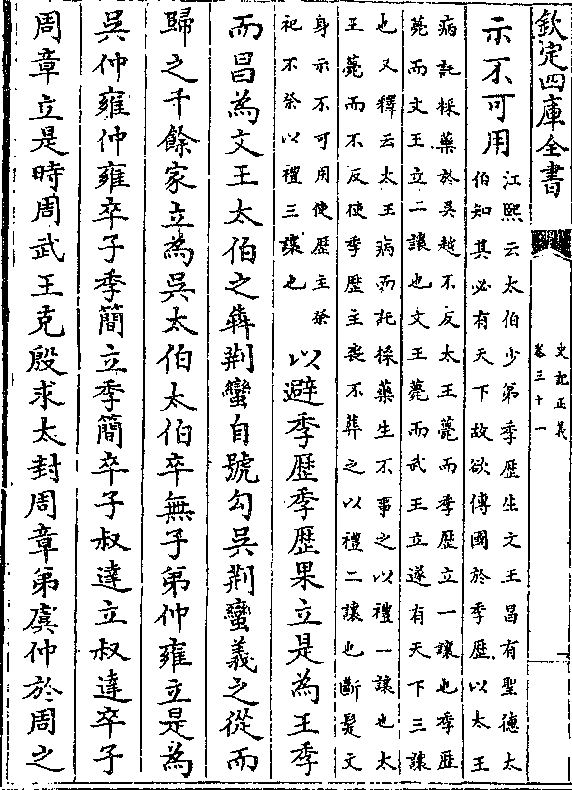 欽定四庫全書
史記正義
卷三十一
一
示不可用
江熙云太伯少第季歷生文王昌有聖德太
伯知其必有天下故欲傳國於季歷以太王
病託採藥於吳越不反太王薨而季歷立一讓也季歷
薨而文王立二讓也文王薨而武王立遂有天下三讓
也又釋云太王病而託採藥生不事之以禮一讓也太
王薨而不反使季歷主喪不葬之以禮二讓也斷髮文
身示不可用使歷主祭
祀不祭以禮三讓也
以避季歷季歷果立是為王季
而昌為文王太伯之犇荆蠻自號勾吳荆蠻義之從而
歸之千餘家立為吳太伯太伯卒無子第仲雍立是為
吳仲雍仲雍卒子季簡立季簡卒子叔達立叔達卒子
周章立是時周武王克殷求太封周章第虞仲於周之